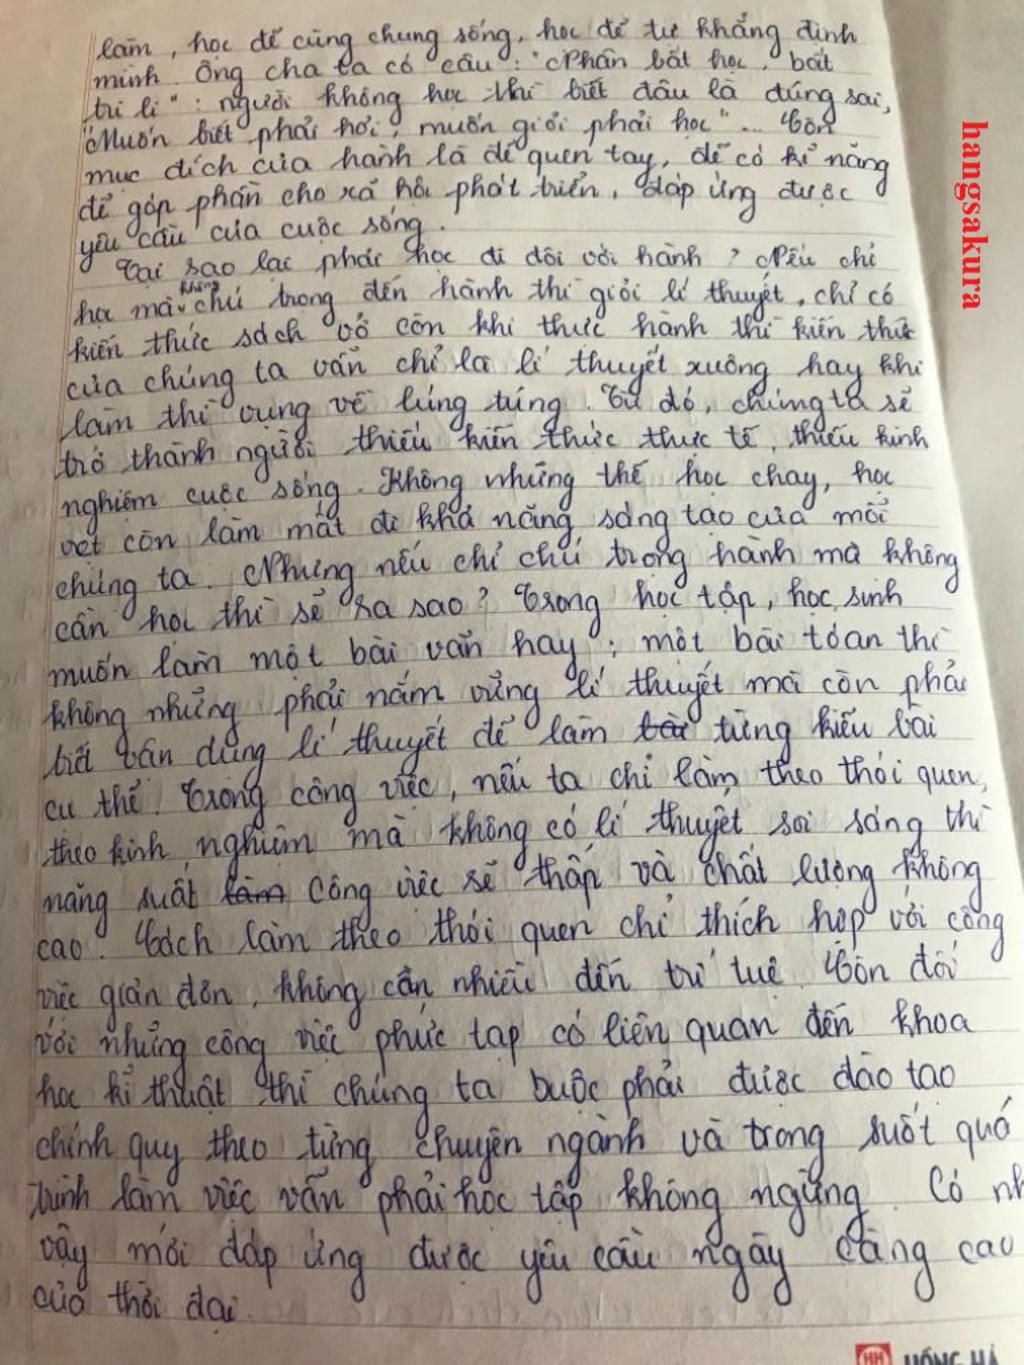 làm, học để cùng chung sống, học để tự khẳng định
mình. Ông cha ta có câu: "Nhân bất học, bất
tri lí": người không học thì biết đâu là đúng sai,
"Muốn biết phải hỏi, muốn giỏi phải học"... Còn
mục đích của hành là để quen tay, để có kĩ năng
để góp phần cho xã hội phát triển, đáp ứng được
yêu cầu của cuộc sống.
Tại sao lại phải học đi đôi với hành? Nếu chỉ
học mà không chú trọng đến hành thì giỏi lí thuyết, chỉ có
kiến thức sách vở còn khi thực hành thì kiến thức
của chúng ta vẫn chỉ là lí thuyết xuông hay khi
làm thì vụng về lúng túng. Từ đó, chúng ta sẽ
trở thành người thiếu kiến thức thực tế, thiếu kinh
nghiệm cuộc sống. Không những thế học chay, học
vẹt còn làm mất đi khả năng sáng tạo của mỗi
chúng ta. Nhưng nếu chỉ chú trọng hành mà không
cần học thì sẽ ra sao? Trong học tập, học sinh
muốn làm một bài văn hay; một bài tóan thì
không những phải nắm vững lí thuyết mà còn phải
biết vận dụng lí thuyết để làm bài từng kiểu bài
cụ thể. Trong công việc, nếu ta chỉ làm theo thói quen,
theo kinh nghiệm mà không có lí thuyết soi sáng thì
năng suất làm công việc sẽ thấp và chất lượng không
cao. Cách làm theo thói quen chỉ thích hợp với công
việc giản đơn, không cần nhiều đến trí tuệ. Còn đối
với những công việc phức tạp có liên quan đến khoa
học kĩ thuật thì chúng ta buộc phải được đào tạo
chính quy theo từng chuyên ngành và trong suốt quá
trình làm việc vẫn phải học tập không ngừng. Có nh
vậy mới đáp ứng được yêu cầu ngày càng cao
của thời đại.
hangsakura
HH HỒNG HÀ